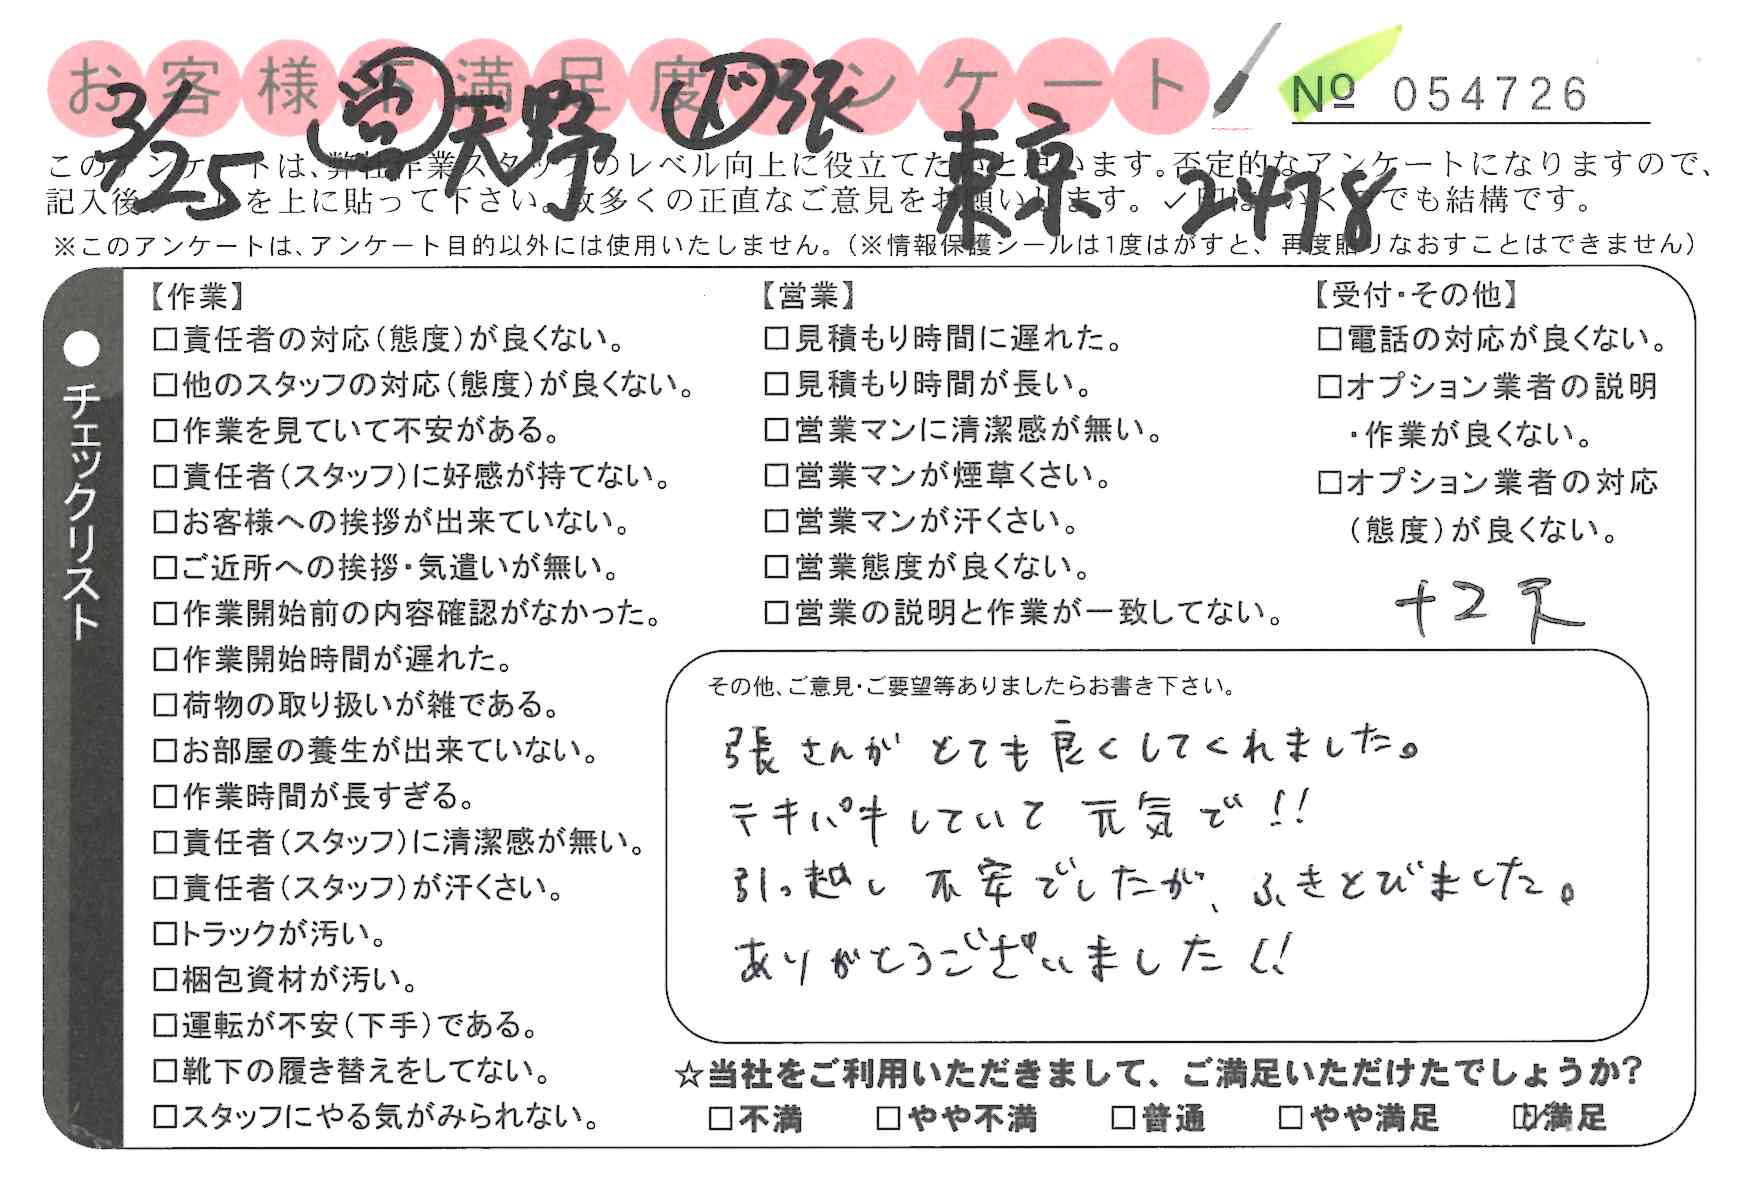 お客様不満足度アンケート
№ 054726
3/25 ㊂天野 ド張 東京 2478
このアンケートは、弊社作業スタッフのレベル向上に役立てたいと思います。否定的なアンケートになりますので、
記入後シールを上に貼って下さい。数多くの正直なご意見をお願いします。✓印はいくつでも結構です。
※このアンケートは、アンケート目的以外には使用いたしません。(※情報保護シールは1度はがすと、再度貼りなおすことはできません)
●チェックリスト
【作業】
□責任者の対応(態度)が良くない。
□他のスタッフの対応(態度)が良くない。
□作業を見ていて不安がある。
□責任者(スタッフ)に好感が持てない。
□お客様への挨拶が出来ていない。
□ご近所への挨拶・気遣いが無い。
□作業開始前の内容確認がなかった。
□作業開始時間が遅れた。
□荷物の取り扱いが雑である。
□お部屋の養生が出来ていない。
□作業時間が長すぎる。
□責任者(スタッフ)に清潔感が無い。
□責任者(スタッフ)が汗くさい。
□トラックが汚い。
□梱包資材が汚い。
□運転が不安(下手)である。
□靴下の履き替えをしてない。
□スタッフにやる気がみられない。
【営業】
□見積もり時間に遅れた。
□見積もり時間が長い。
□営業マンに清潔感が無い。
□営業マンが煙草くさい。
□営業マンが汗くさい。
□営業態度が良くない。
□営業の説明と作業が一致してない。
【受付・その他】
□電話の対応が良くない。
□オプション業者の説明
・作業が良くない。
□オプション業者の対応
(態度)が良くない。
+2
その他、ご意見・ご要望等ありましたらお書き下さい。
張さんがとても良くしてくれました。
テキパキしていて元気で!!
引っ越し不安でしたが、ふきとびました。
ありがとうございました!!
☆当社をご利用いただきまして、ご満足いただけたでしょうか?
□不満 □やや不満 □普通 □やや満足 ☑満足